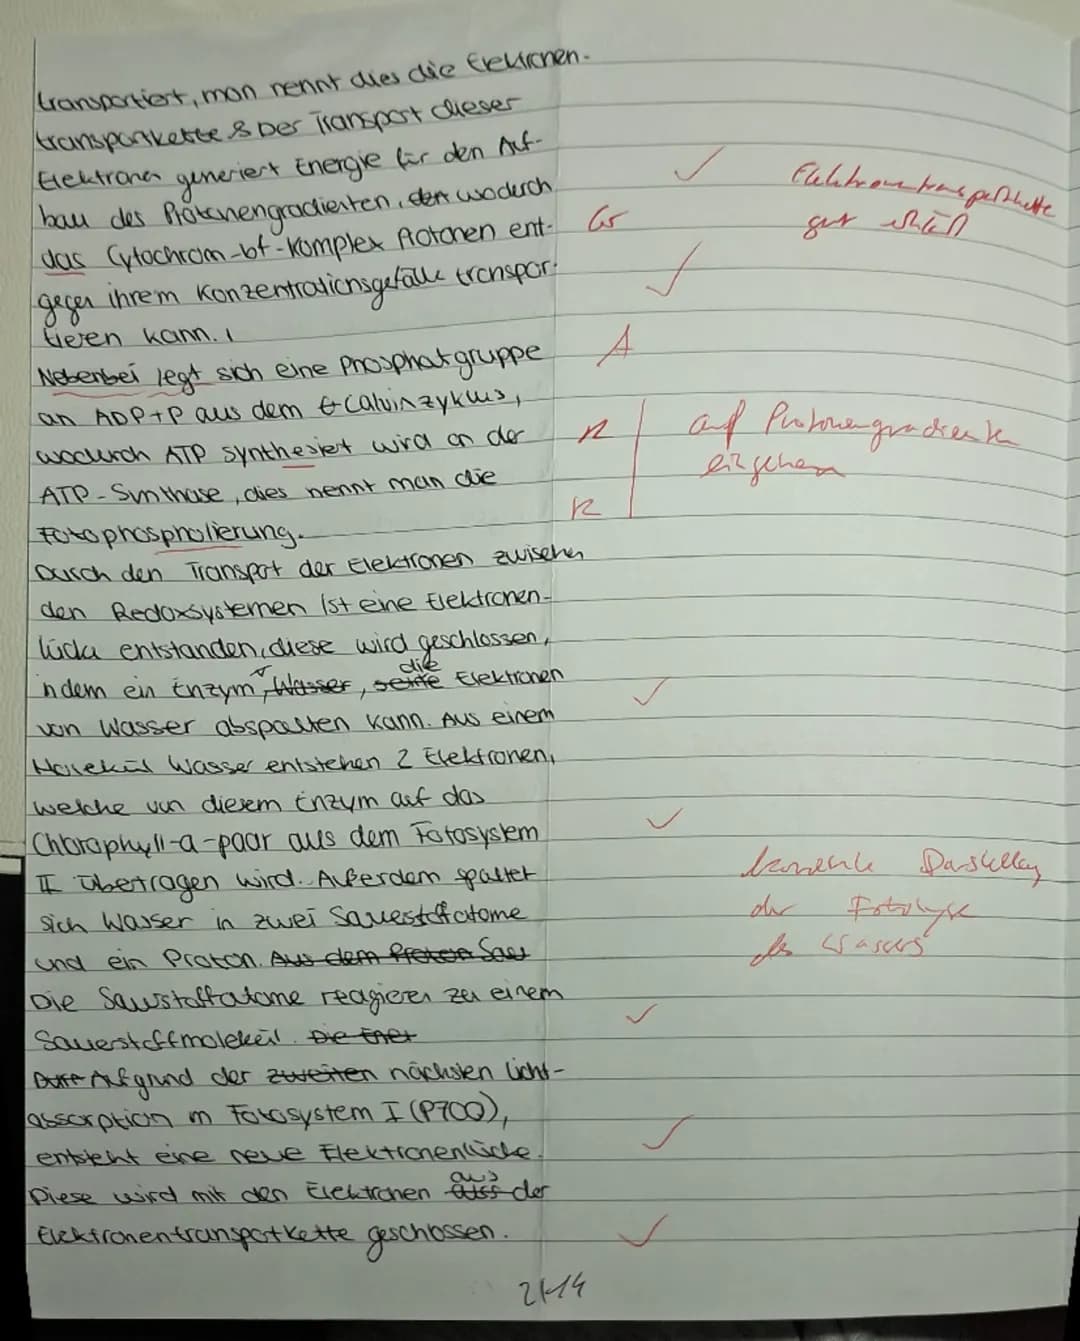 transportiert, man nennt dies die Elektronen-
transportkette. Der Transport dieser
Elektronen generiert Energie für den Auf-
bau des Protonengradienten, den wodurch
das Cytochrom-bf-Komplex Protonen ent-
gegen ihrem Konzentrationsgefälle transpor-
tieren kann.
Nebenbei legt sich eine Phosphatgruppe
an ADP+P aus dem Calvinzyklus,
wodurch ATP synthesiert wird an der
ATP-Synthase, dies nennt man die
Fotophospholierung.
Durch den Transport der Elektronen zwischen
den Redoxsystemen ist eine Elektronen-
lücke entstanden, diese wird geschlossen,
indem ein Enzym, Wasser, seine die Elektronen
von Wasser abspalten kann. Aus einem
Molekül Wasser entstehen 2 Elektronen,
welche von diesem Enzym auf das
Chlorophyll-a-paar aus dem Fotosystem
II übertragen wird. Außerdem spaltet
sich Wasser in zwei Sauestoffatome
und ein Proton. Aus dem Proton Saus
Die Saustoffatome reagieren zu einem
Sauerstoffmolekül. Die Ener
Aufgrund der zweiten nächsten Licht-
absorption im Fotosystem I (P700),
entsteht eine neue Elektronenlücke.
Diese wird mit den Elektronen aus der
Elektronentransportkette geschlossen.
Elektronentransportkette
gut erklärt
Gr
A
R
R
auf Protonengradienten
eingehen
korrekte Darstellung
der Fotolyse
des Wassers